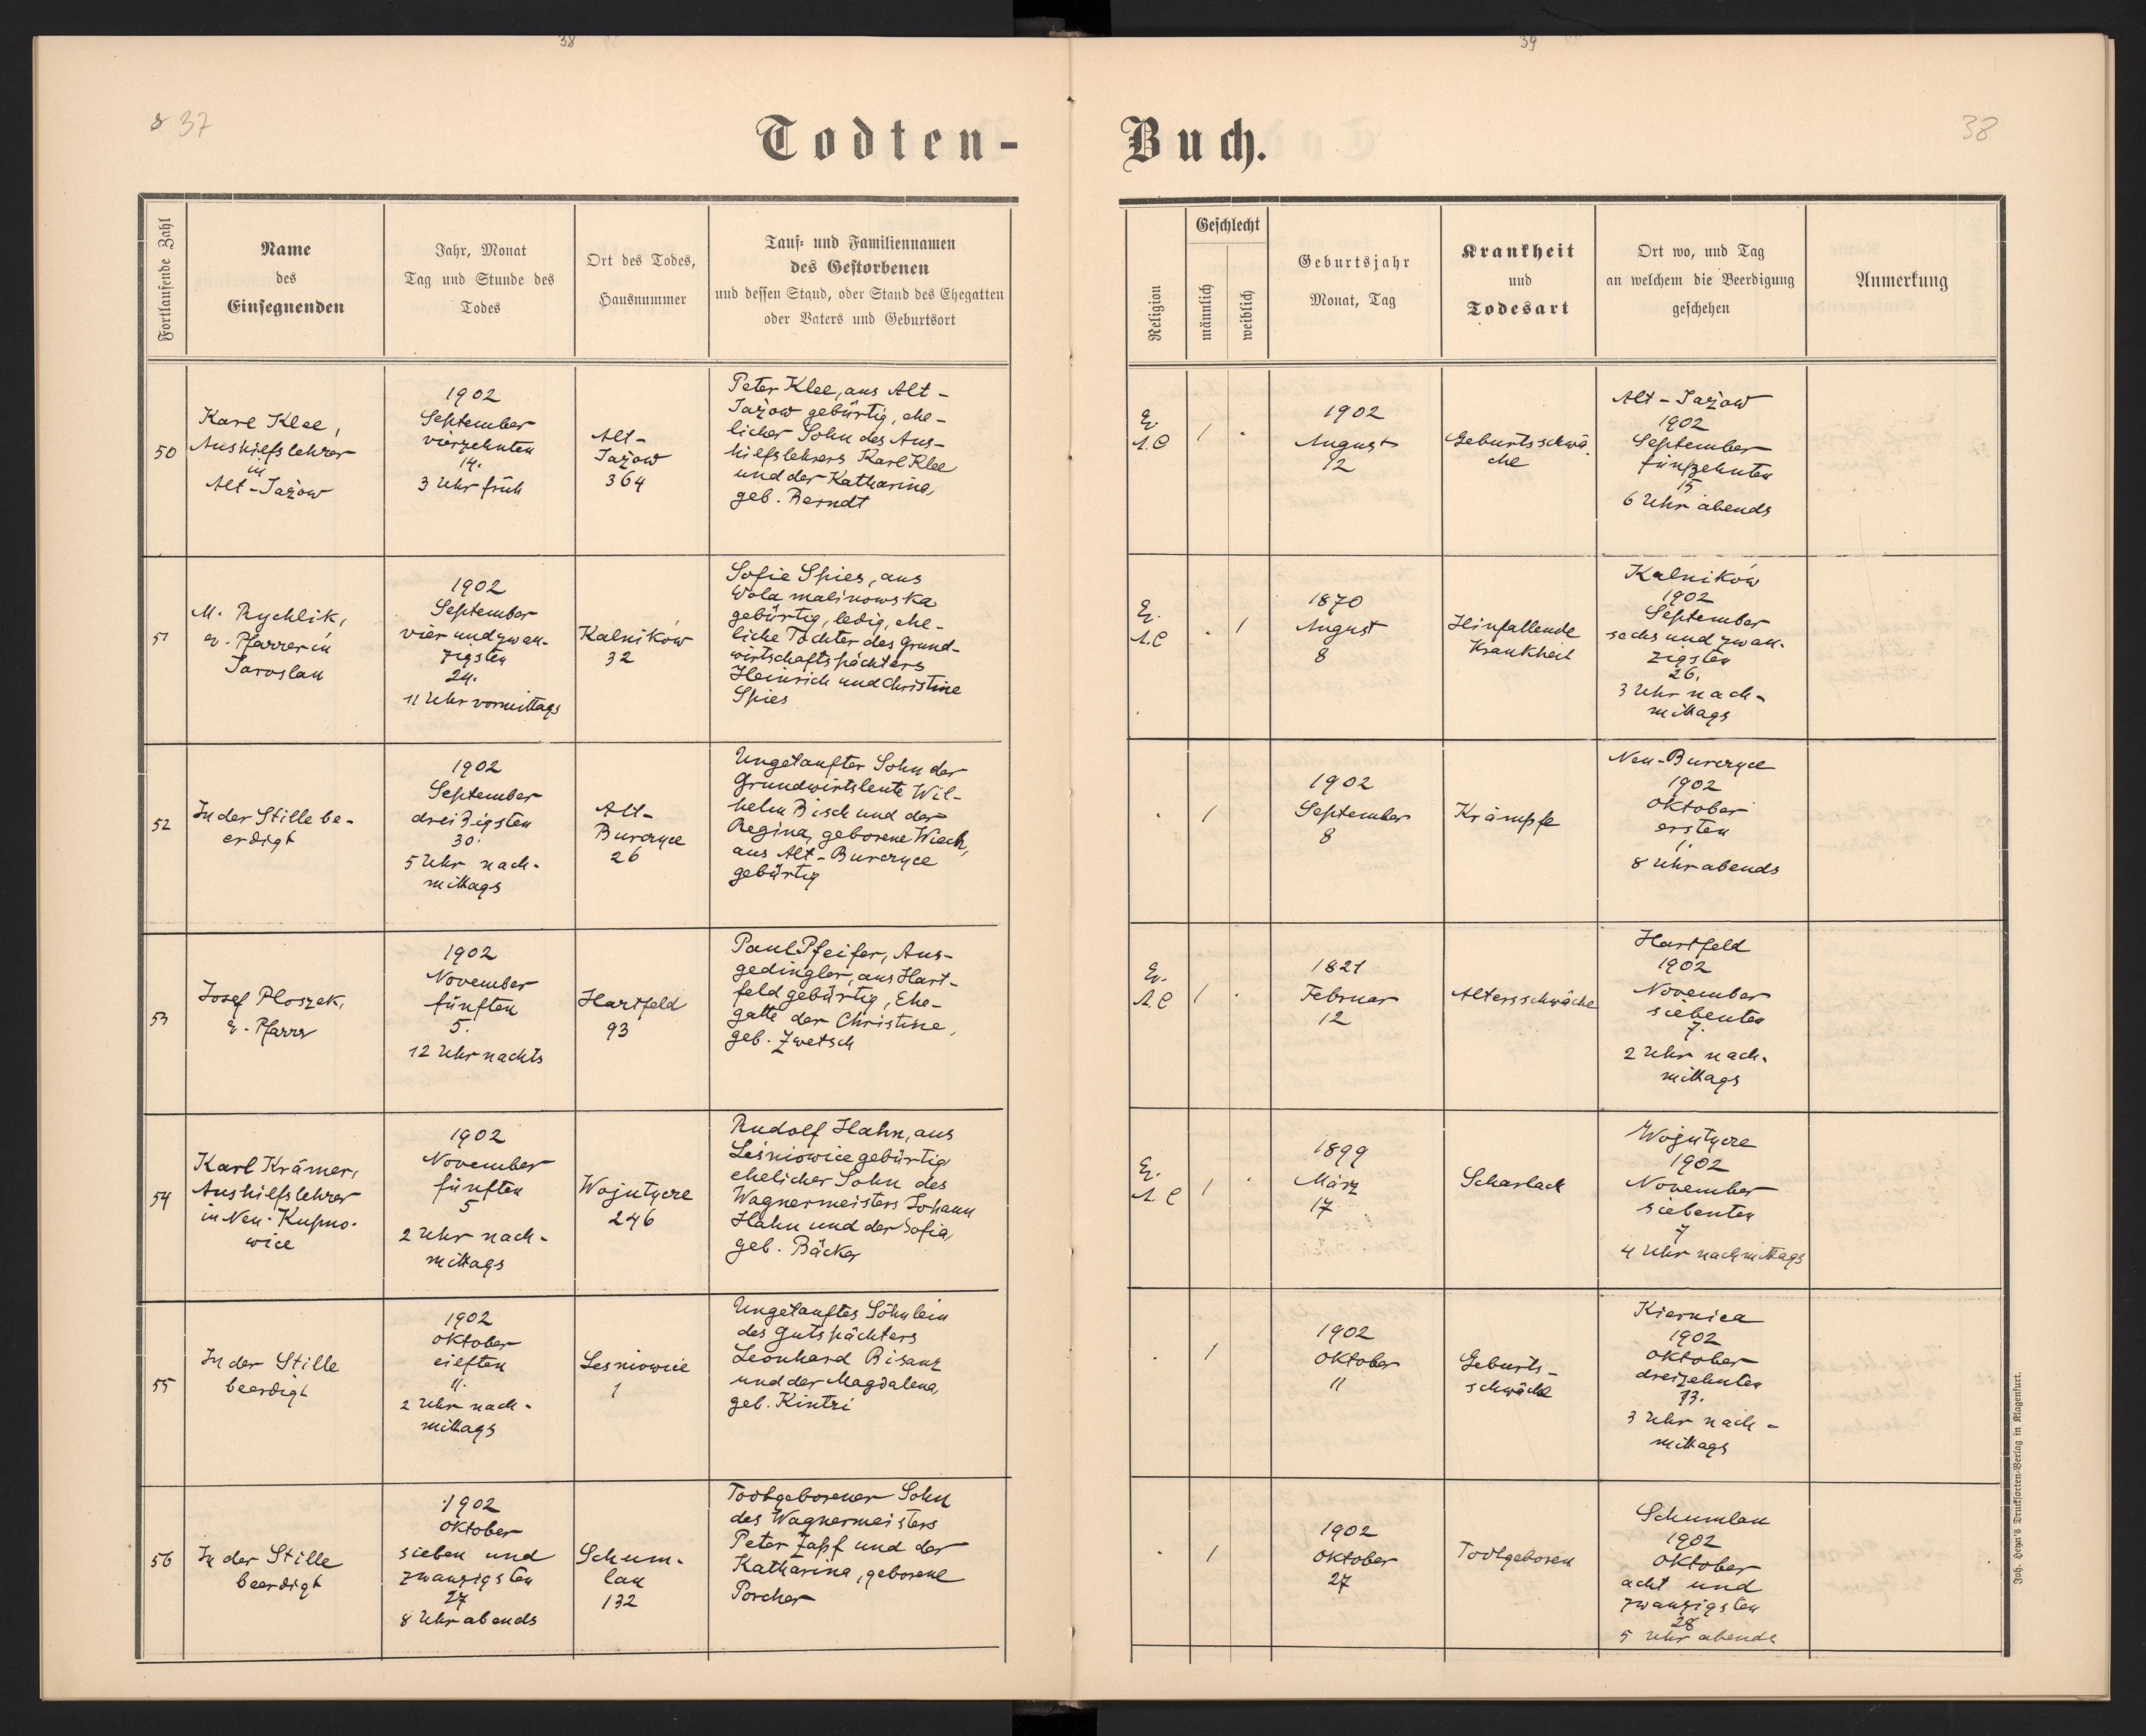 38
39
8 37
38
Todten-
Buch.
Fortlaufende Zahl
Name
des
Einsegnenden
Jahr, Monat
Tag und Stunde des
Todes
Ort des Todes,
Hausnummer
Tauf- und Familiennamen
des Gestorbenen
und dessen Stand, oder Stand des Ehegatten
oder Vaters und Geburtsort
Religion
Geschlecht
männlich
weiblich
Geburtsjahr
Monat, Tag
Krankheit
und
Todesart
Ort wo, und Tag
an welchem die Beerdigung
geschehen
Anmerkung
50
Karl Klee,
Aushilfslehrer
in
Alt-Jażow
1902
September
vierzehnten
14.
3 Uhr früh
Alt-
Jażow
364
Peter Klee, aus Alt-
Jażow gebürtig, ehe-
licher Sohn des Aus-
hilfslehrers Karl Klee
und der Katharina,
geb. Berndt
Ev.
A.C
1902
August
12
Geburtsschwä-
che
Alt-Jażow
1902
September
fünfzehnten
15
6 Uhr abends
51
M. Rychlik,
ev. Pfarrer in
Jaroslau
1902
September
vierundzwan-
zigsten
24.
11 Uhr vormittags
Kalników
32
Sofie Spies, aus
Wola malinowska
gebürtig, ledig, ehe-
liche Tochter des Grund-
wirtschaftspächters
Heinrich und Christine
Spies
Ev.
A.C
1870
August
8
Hinfallende
Krankheit
Kalników
1902
September
sechsundzwan-
zigsten
26.
3 Uhr nach-
mittags
52
In der Stille be-
erdigt
1902
September
dreißigsten
30.
5 Uhr nach-
mittags
Alt-
Burczyce
26
Ungetaufter Sohn der
Grundwirtsleute Wil-
helm Bisch und der
Regina, geborene Wiech,
aus Alt-Burczyce
gebürtig
1902
September
8
Krämpfe
Neu-Burczyce
1902
Oktober
ersten
1.
8 Uhr abends
53
Josef Ploszek,
ev. Pfarrer
1902
November
fünften
5.
12 Uhr nachts
Hartfeld
93
Paul Pfeifer, Aus-
gedingler, aus Hart-
feld gebürtig, Ehe-
gatte der Christine,
geb. Zwetsch
Ev.
A.C
1821
Februar
12
Altersschwäche
Hartfeld
1902
November
siebenten
7.
2 Uhr nach-
mittags
54
Karl Krämer,
Aushilfslehrer
in Neu-Kupno-
wice
1902
November
fünften
5
2 Uhr nach-
mittags
Wojutycze
246
Rudolf Hahn, aus
Leśniowice gebürtig
ehelicher Sohn des
Wagnermeisters Johann
Hahn und der Sofia,
geb. Bäcker
Ev.
A.C
1899
März
17
Scharlach
Wojutycze
1902
November
siebenten
7
4 Uhr nachmittags
55
In der Stille
beerdigt
1902
Oktober
eilften
11.
2 Uhr nach-
mittags
Lesniowice
1
Ungetauftes Söhnlein
des Gutspächters
Leonhard Bisanz
und der Magdalena,
geb. Kintzi
1902
Oktober
11
Geburts-
schwäche
Kiernica
1902
Oktober
dreizehnten
13.
3 Uhr nach-
mittags
56
In der Stille
beerdigt
1902
Oktober
sieben und
zwanzigsten
27
8 Uhr abends
Schum-
lau
132
Todtgeborener Sohn
des Wagnermeisters
Peter Zapf und der
Katharina, geborene
Porcher
1902
Oktober
27
Todtgeboren
Schumlau
1902
Oktober
acht und
zwanzigsten
28
5 Uhr abends
Joh. Heyn's Drucksorten-Verlag in Klagenfurt.